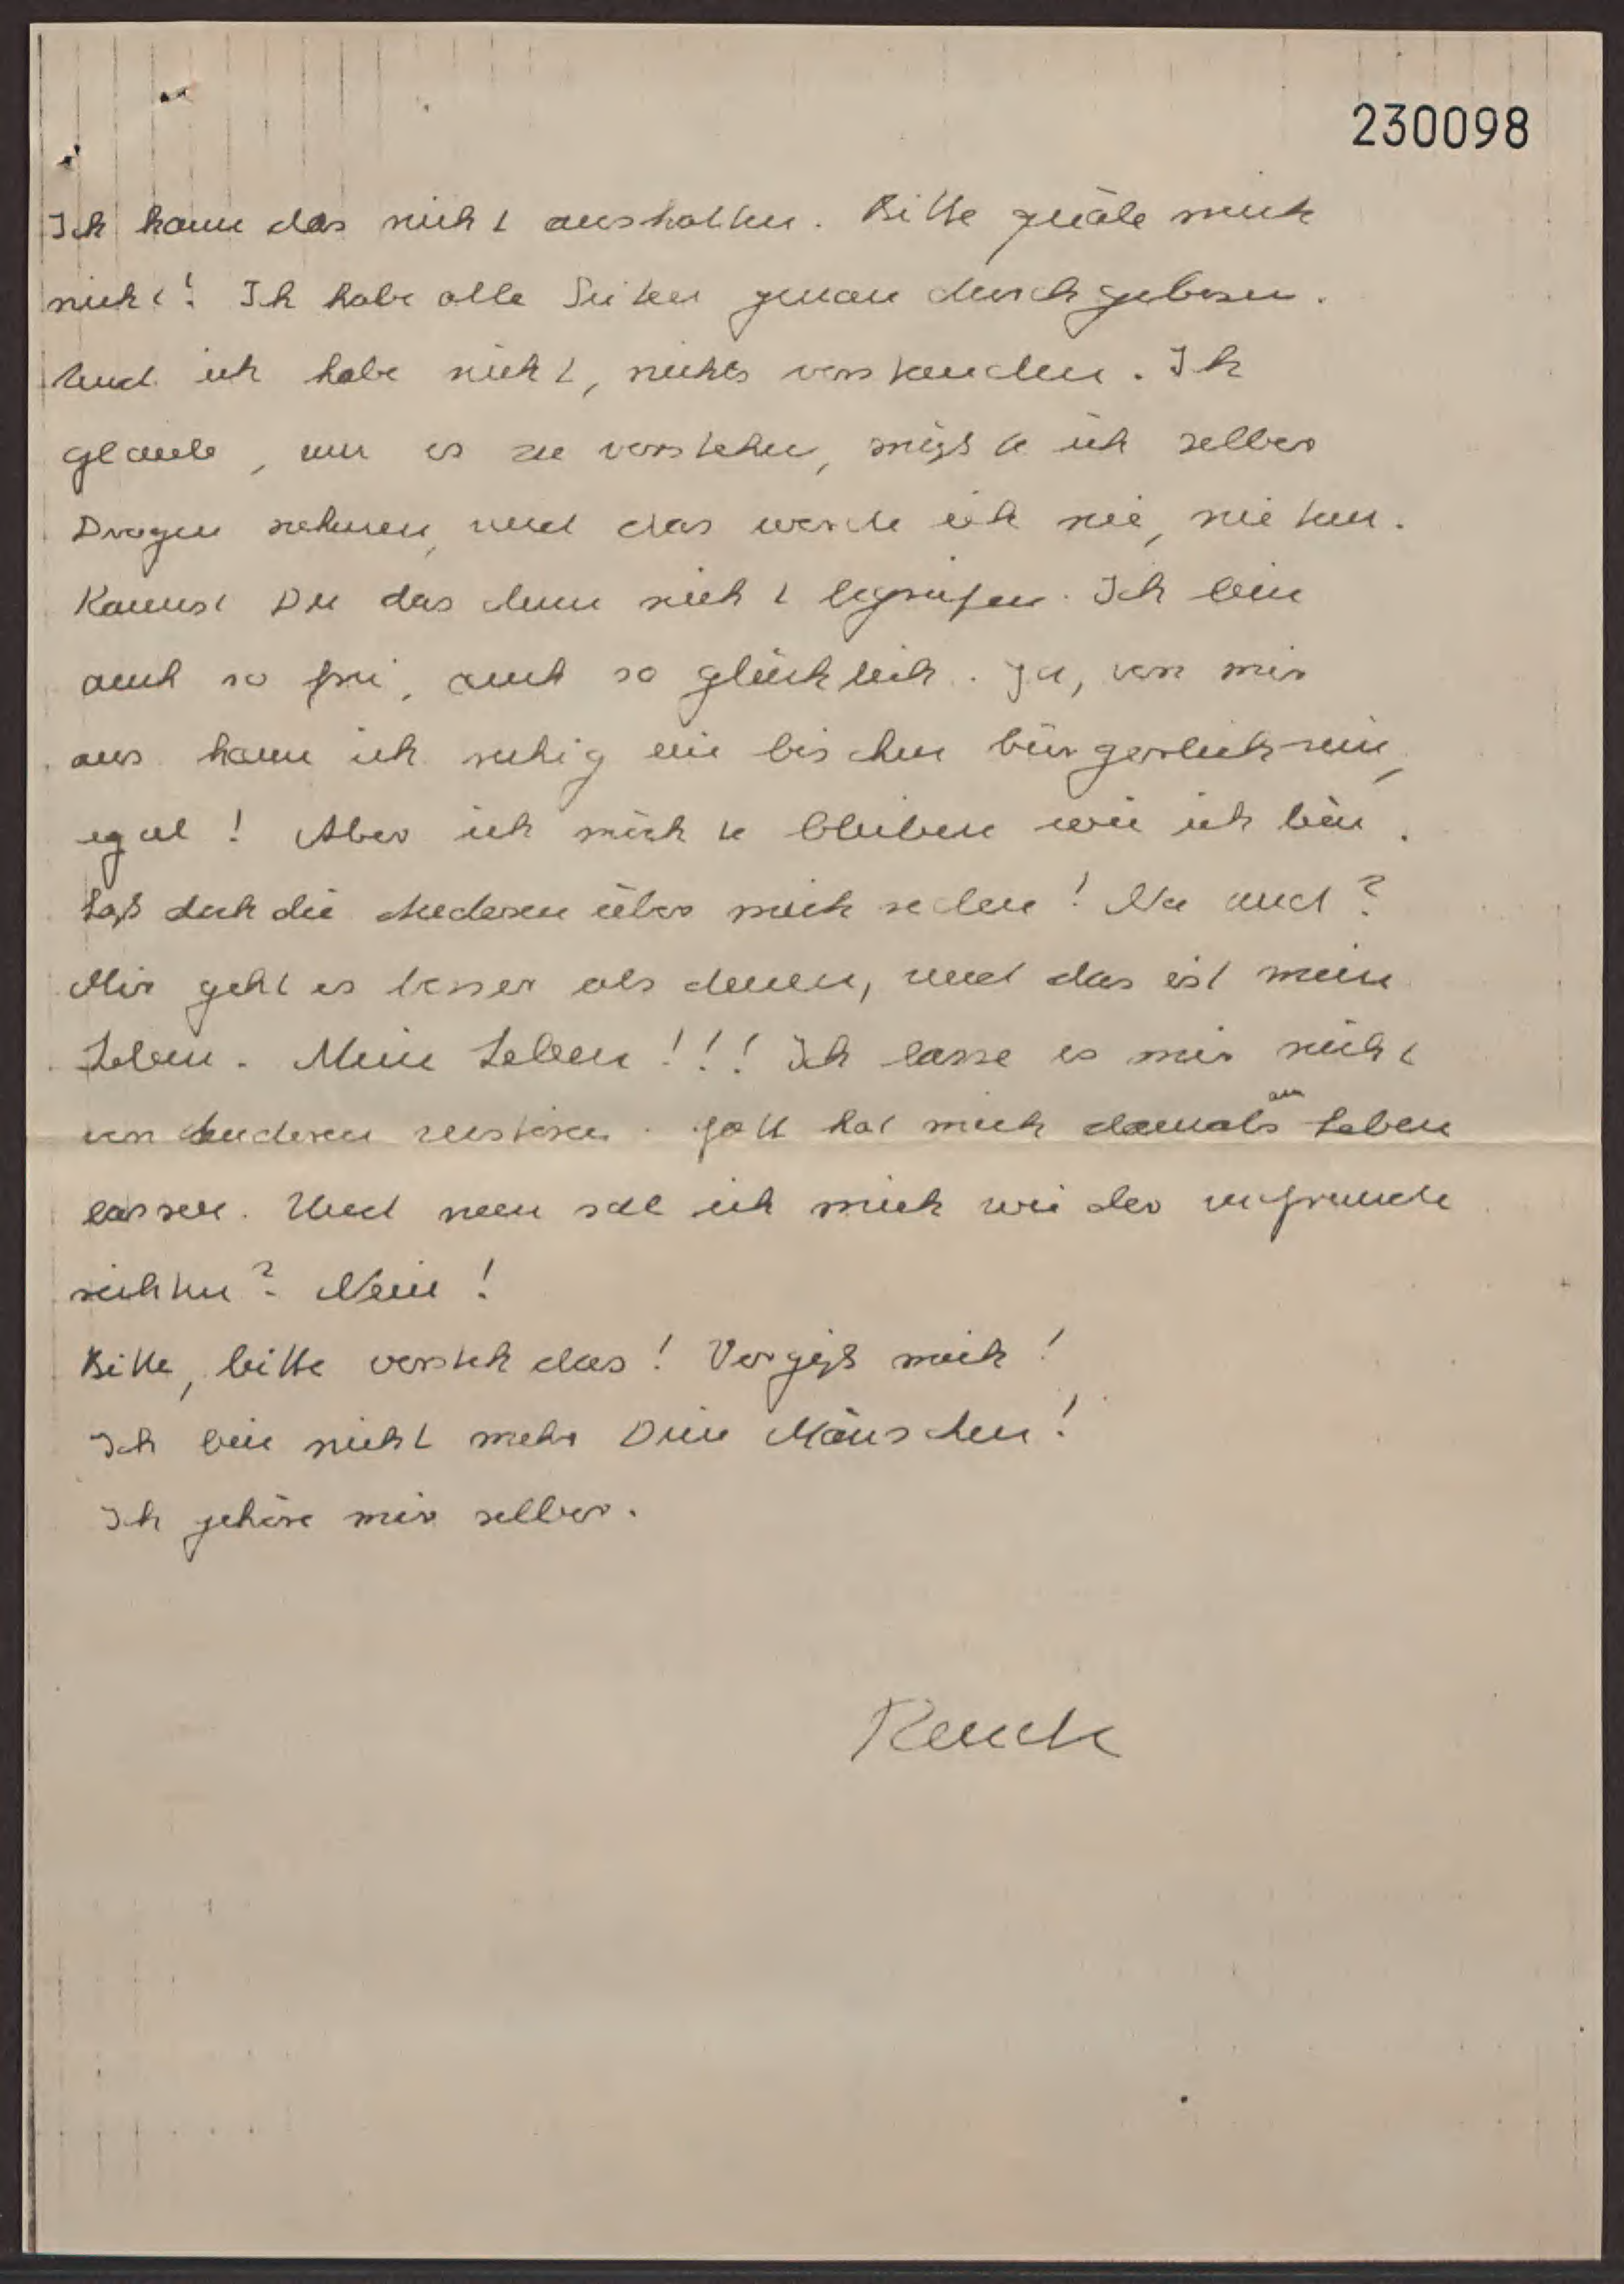 230098
Ich kann das nicht aushalten. Bitte quäle mich
nicht! Ich habe alle Seiten genau durchgelesen.
Und ich habe nicht, nichts verstanden. Ich
glaube, um es zu verstehen, müßte ich selber
Drogen nehmen, und das werde ich nie, nie tun.
Kannst Du das denn nicht begreifen. Ich bin
auch so frei, auch so glücklich. Ja, von mir
aus kann ich ruhig ein bischen bürgerlich sein,
egal! Aber ich möchte bleiben wie ich bin.
Laß doch die Anderen über mich reden! Na und?
Mir geht es besser als denen, und das ist mein
Leben. Mein Leben!!! Ich lasse es mir nicht
von Anderen zerstören. Gott hat mich damals am Leben
lassen. Und nun soll ich mich wieder zugrunde
richten? Nein!
Bitte, bitte versteh das! Vergiß mich!
Ich bin nicht mehr Dein Mäuschen!
Ich gehöre mir selber.